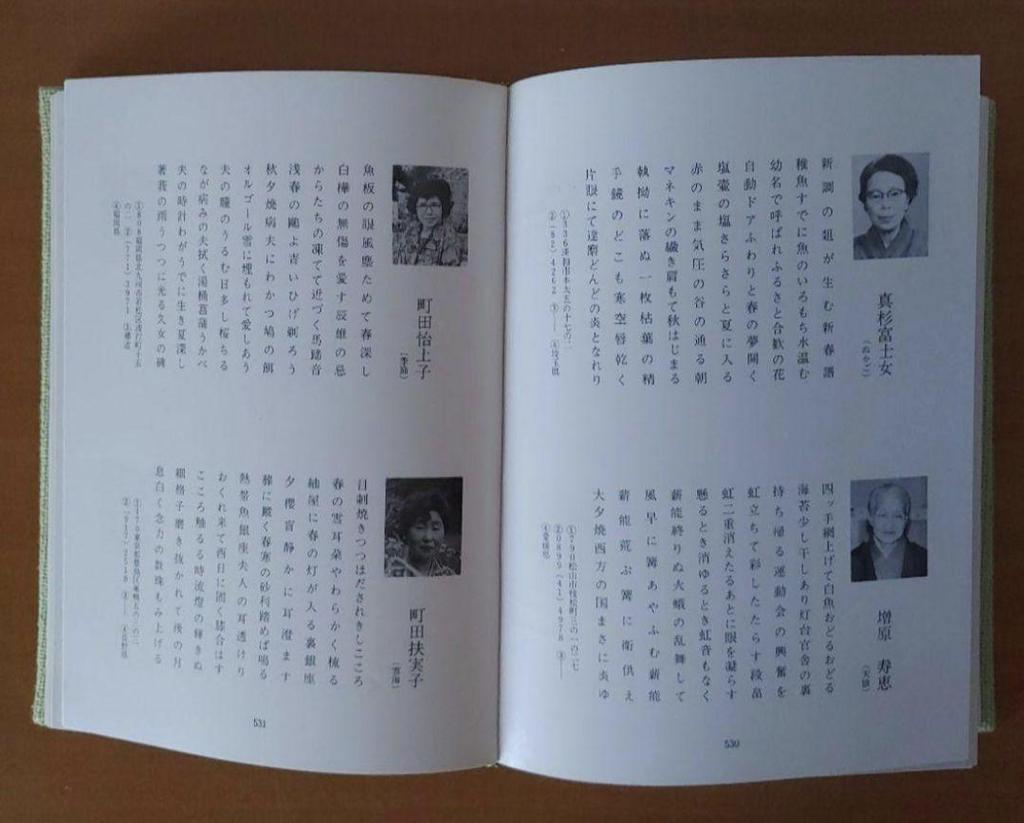 真杉富士女
（ぬかご）
新調の俎が生む新春譜
稚魚すでに魚のいろもち水温む
幼名で呼ばれふるさと合歓の花
自動ドアふわりと春の夢開く
塩壷の塩さらさらと夏に入る
赤のまま気圧の谷の通る朝
マネキンの磯き肩もて秋はじまる
執拗に落ぬ一枚枯葉の精
手鏡のどこも寒空唇乾く
片眼にて達磨どんどの炎となれり
増原寿恵
（天狼）
四ッ手網上げて白魚おどるおどる
海苔少し干しあり灯台官舎の裏
持ち帰る運動会の興奮を
虹立ちて彩したたらす段畠
虹二重消えたるあとに眼を凝らす
懸るとき消ゆるとき虹音もなく
薪能終りぬ火蛾の乱舞して
風早に篝あやふむ薪能
薪能荒ぶ篝に衛供え
大夕焼西方の国まさに炎ゆ
④愛媛県
530
町田怡上子
魚板の眼風塵ためて春深し
白樺の無傷を愛す辰雄の忌
からたちの凍てて近づく馬蹄音
浅春の鷗よ青いひげ剃ろう
秋夕焼病夫にわかつ鳩の餌
オルゴール雪に埋もれて愛しあう
夫の瞳のうるむ日多し桜ちる
なが病みの夫拭く湯桶菖蒲うかべ
夫の時計わがうでに生き夏深し
著莪の雨うつつに光る久女の碑
④福岡県
町田扶実子
目刺焼きつつほだされきしこころ
春の雪耳朶やわらかく梳る
紬屋に春の灯が入る裏銀座
夕櫻盲静かに耳澄ます
葬に蹤く春寒の砂利踏めば鳴る
熱帯魚銀座夫人の耳透けり
おくれ来て西日に固く膝合はす
こころ触るる時流燈の輝きぬ
細格子磨き抜かれて後の月
息白く念力の数珠もみ上げる
531